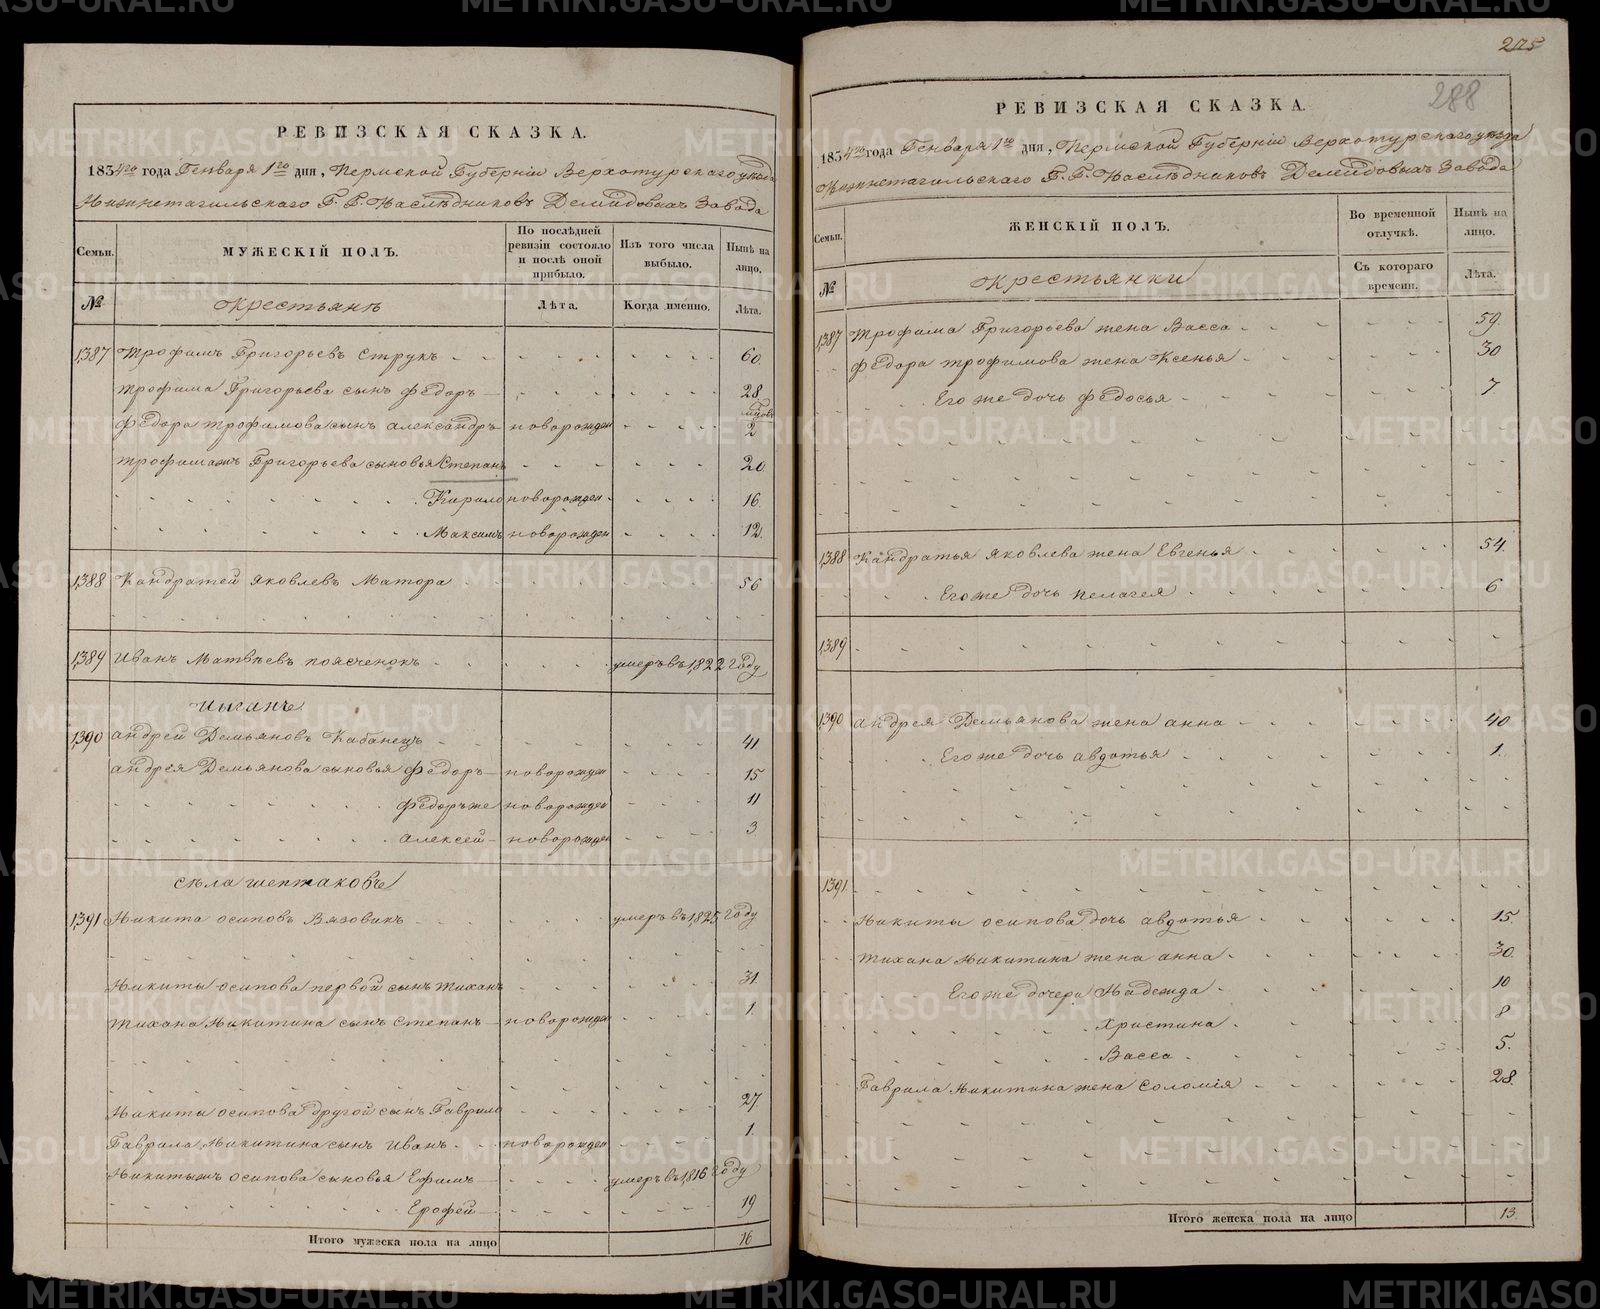 РЕВИЗСКАЯ СКАЗКА.
1834го года Генваря 1го дня, Пермской Губерніи Верхотурскаго уезда
Нижнетагильскаго Г. Г. Наслѣдниковъ Демидовыхъ Завода
Семьи.
МУЖЕСКІЙ ПОЛЪ.
По послѣдней ревизіи состояло и послѣ оной прибыло.
Изъ того числа выбыло.
Нынѣ на лицо.
№
Крестьянъ
Лѣта.
Когда именно.
Лѣта.
1387 Трофимъ Григорьевъ Струкъ 60.
Трофима Григорьева сынъ Федоръ 28
Федора Трофимова сынъ Александръ новорожден мцовъ 2
Трофимажъ Григорьева сыновья Степанъ 20
Кирило новорожден 16
Максимъ новорожден 12
1388 Кандратей Яковлевъ Матора 56
1389 Иванъ Матвѣевъ Поясченокъ умеръ въ 1822 году
Цыганъ
1390 Андрей Демьяновъ Кабанецъ 41
Андрея Демьянова сыновья Федоръ новорожден 15
Федоръ же новорожден 11
Алексей новорожден 3
Села Шептаковъ
1391 Никита Осиповъ Вязовикъ умеръ въ 1825 году
Никиты Осипова первой сынъ Тиханъ 31
Тихана Никитина сынъ Степанъ новорожден 1.
Никиты Осипова другой сынъ Гаврило 27
Гаврила Никитина сынъ Иванъ новорожден 1.
Никитыжъ Осипова сыновья Ефимъ умеръ въ 1816 году
Ерофей 19
Итого мужеска пола на лицо 16
275
288
РЕВИЗСКАЯ СКАЗКА.
1834го года Генваря 1го дня, Пермской Губерніи Верхотурскаго уезда
Нижнетагильскаго Г. Г. Наслѣдниковъ Демидовыхъ Завода
Семьи.
ЖЕНСКІЙ ПОЛЪ.
Во временной отлучкѣ.
Нынѣ на лицо.
№
Крестьянки
Съ котораго времени.
Лѣта.
1387 Трофима Григорьева жена Васса 59.
Федора Трофимова жена Ксенья 30
Его же дочь Федосья 7
1388 Кандратья Яковлева жена Евгенья 54.
Его же дочь Пелагея 6
1389
1390 Андрея Демьянова жена Анна 40
Его же дочь Авдотья 1.
1391
Никиты Осипова дочь Авдотья 15
Тихана Никитина жена Анна 30
Его же дочери Надежда 10
Христина 8
Васса 5.
Гаврила Никитина жена Соломія 28
Итого женска пола на лицо 13.
METRIKI.GASO-URAL.RU